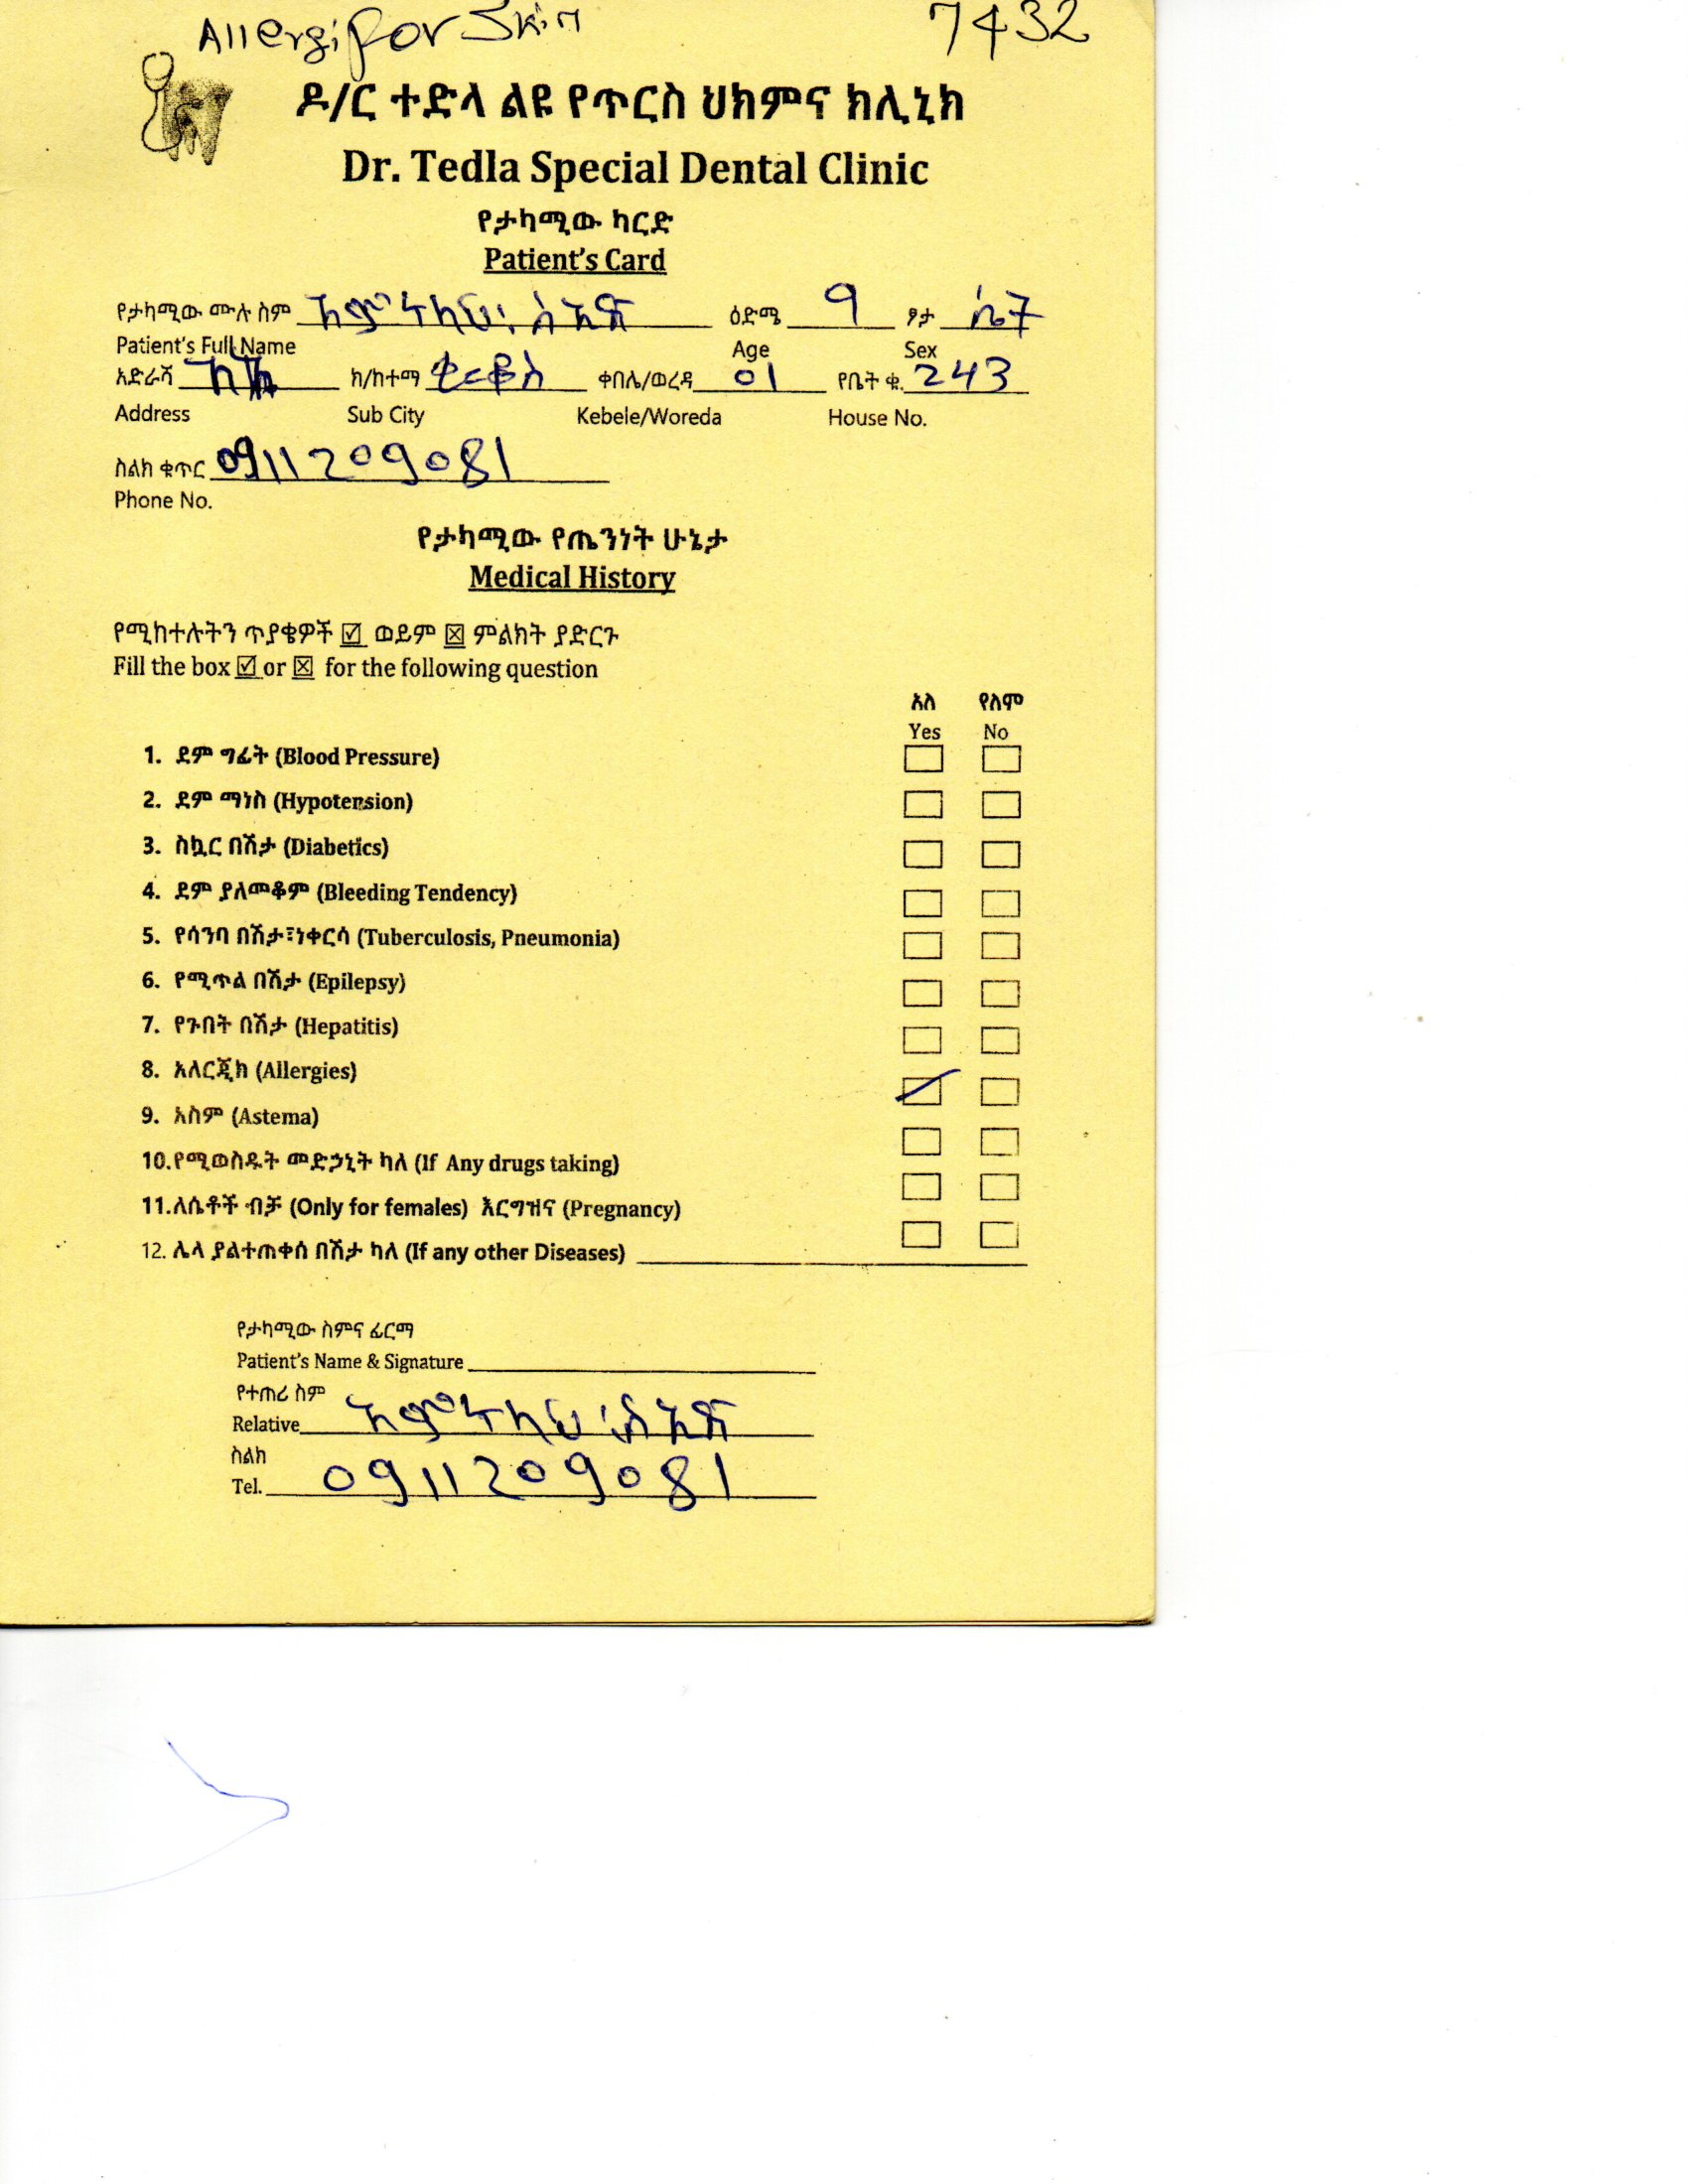 Allergi for Skin 7432
ዶ/ር ተድላ ልዩ የጥርስ ህክምና ክሊኒክ
Dr. Tedla Special Dental Clinic
የታካሚው ካርድ
Patient's Card
የታካሚው ሙሉ ስም ዕድሜ 9 ፆታ ሴት
Patient's Full Name Age Sex
አድራሻ ክ/ከተማ ቂርቆስ ቀበሌ/ወረዳ 01 የቤት ቁ. 243
Address Sub City Kebele/Woreda House No.
ስልክ ቁጥር 0911209081
Phone No.
የታካሚው የጤንነት ሁኔታ
Medical History
የሚከተሉትን ጥያቄዎች ☑ ወይም ☒ ምልክት ያድርጉ
Fill the box ☑ or ☒ for the following question
አለ የለም
Yes No
1. ደም ግፊት (Blood Pressure)
2. ደም ማነስ (Hypotension)
3. ስኳር በሽታ (Diabetics)
4. ደም ያለመቆም (Bleeding Tendency)
5. የሳንባ በሽታ፣ነቀርሳ (Tuberculosis, Pneumonia)
6. የሚጥል በሽታ (Epilepsy)
7. የጉበት በሽታ (Hepatitis)
8. አለርጂክ (Allergies)
9. አስም (Astema)
10.የሚወስዱት መድኃኒት ካለ (If Any drugs taking)
11.ለሴቶች ብቻ (Only for females) እርግዝና (Pregnancy)
12. ሌላ ያልተጠቀሰ በሽታ ካለ (If any other Diseases)
የታካሚው ስምና ፊርማ
Patient's Name & Signature
የተጠሪ ስም
Relative
ስልክ
Tel. 0911209081